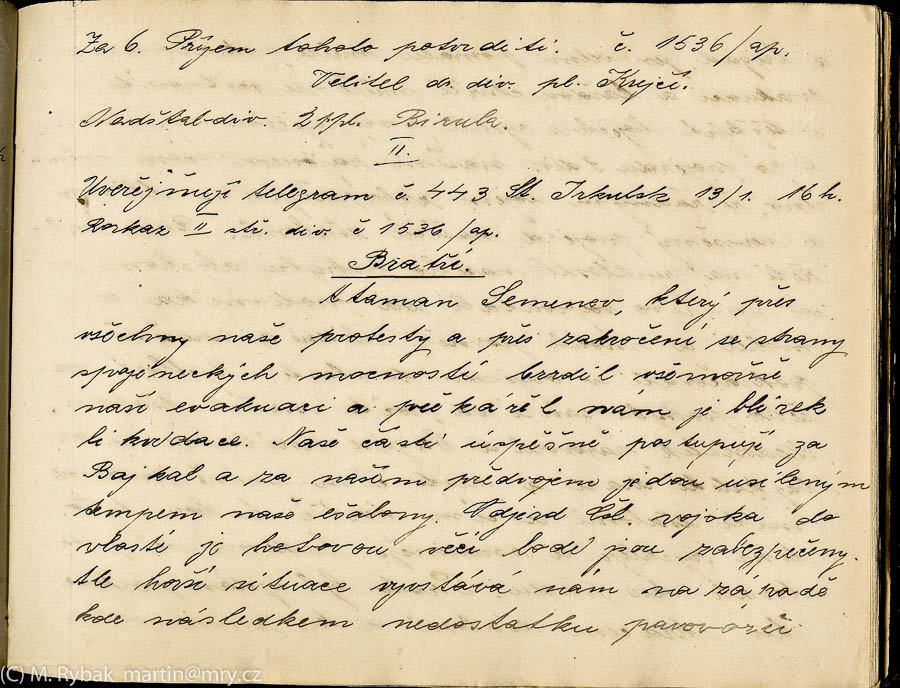 Za 6. Příjem tohoto potvrditi. č. 1536/op.
Velitel dr. div. pl. Krejčí.
Nadštab div. 2 ppl. Birula.
II.
Uveřejňuji telegram č. 443 St. Irkutsk 13/1. 16 h.
Rozkaz II stř. div. č 1536/op.
Bratři.
Ataman Semenov, který přes
všechny naše protesty a přes zakročení se strany
spojeneckých mocností brzdil všemožně
naši evakuaci a překážel nám je blízek
likvidace. Naše části úspěšně postupují za
Bajkal a za našim předvojem jedou úsileným
tempem naše ešalony. Odjezd čsl. vojska do
vlasti je hotovou věcí lodě jsou zabezpečeny.
Ale horší situace vyvstává nám na západě
kde následkem nedostatku parovozů
(C) M. Rybak martin@mry.cz